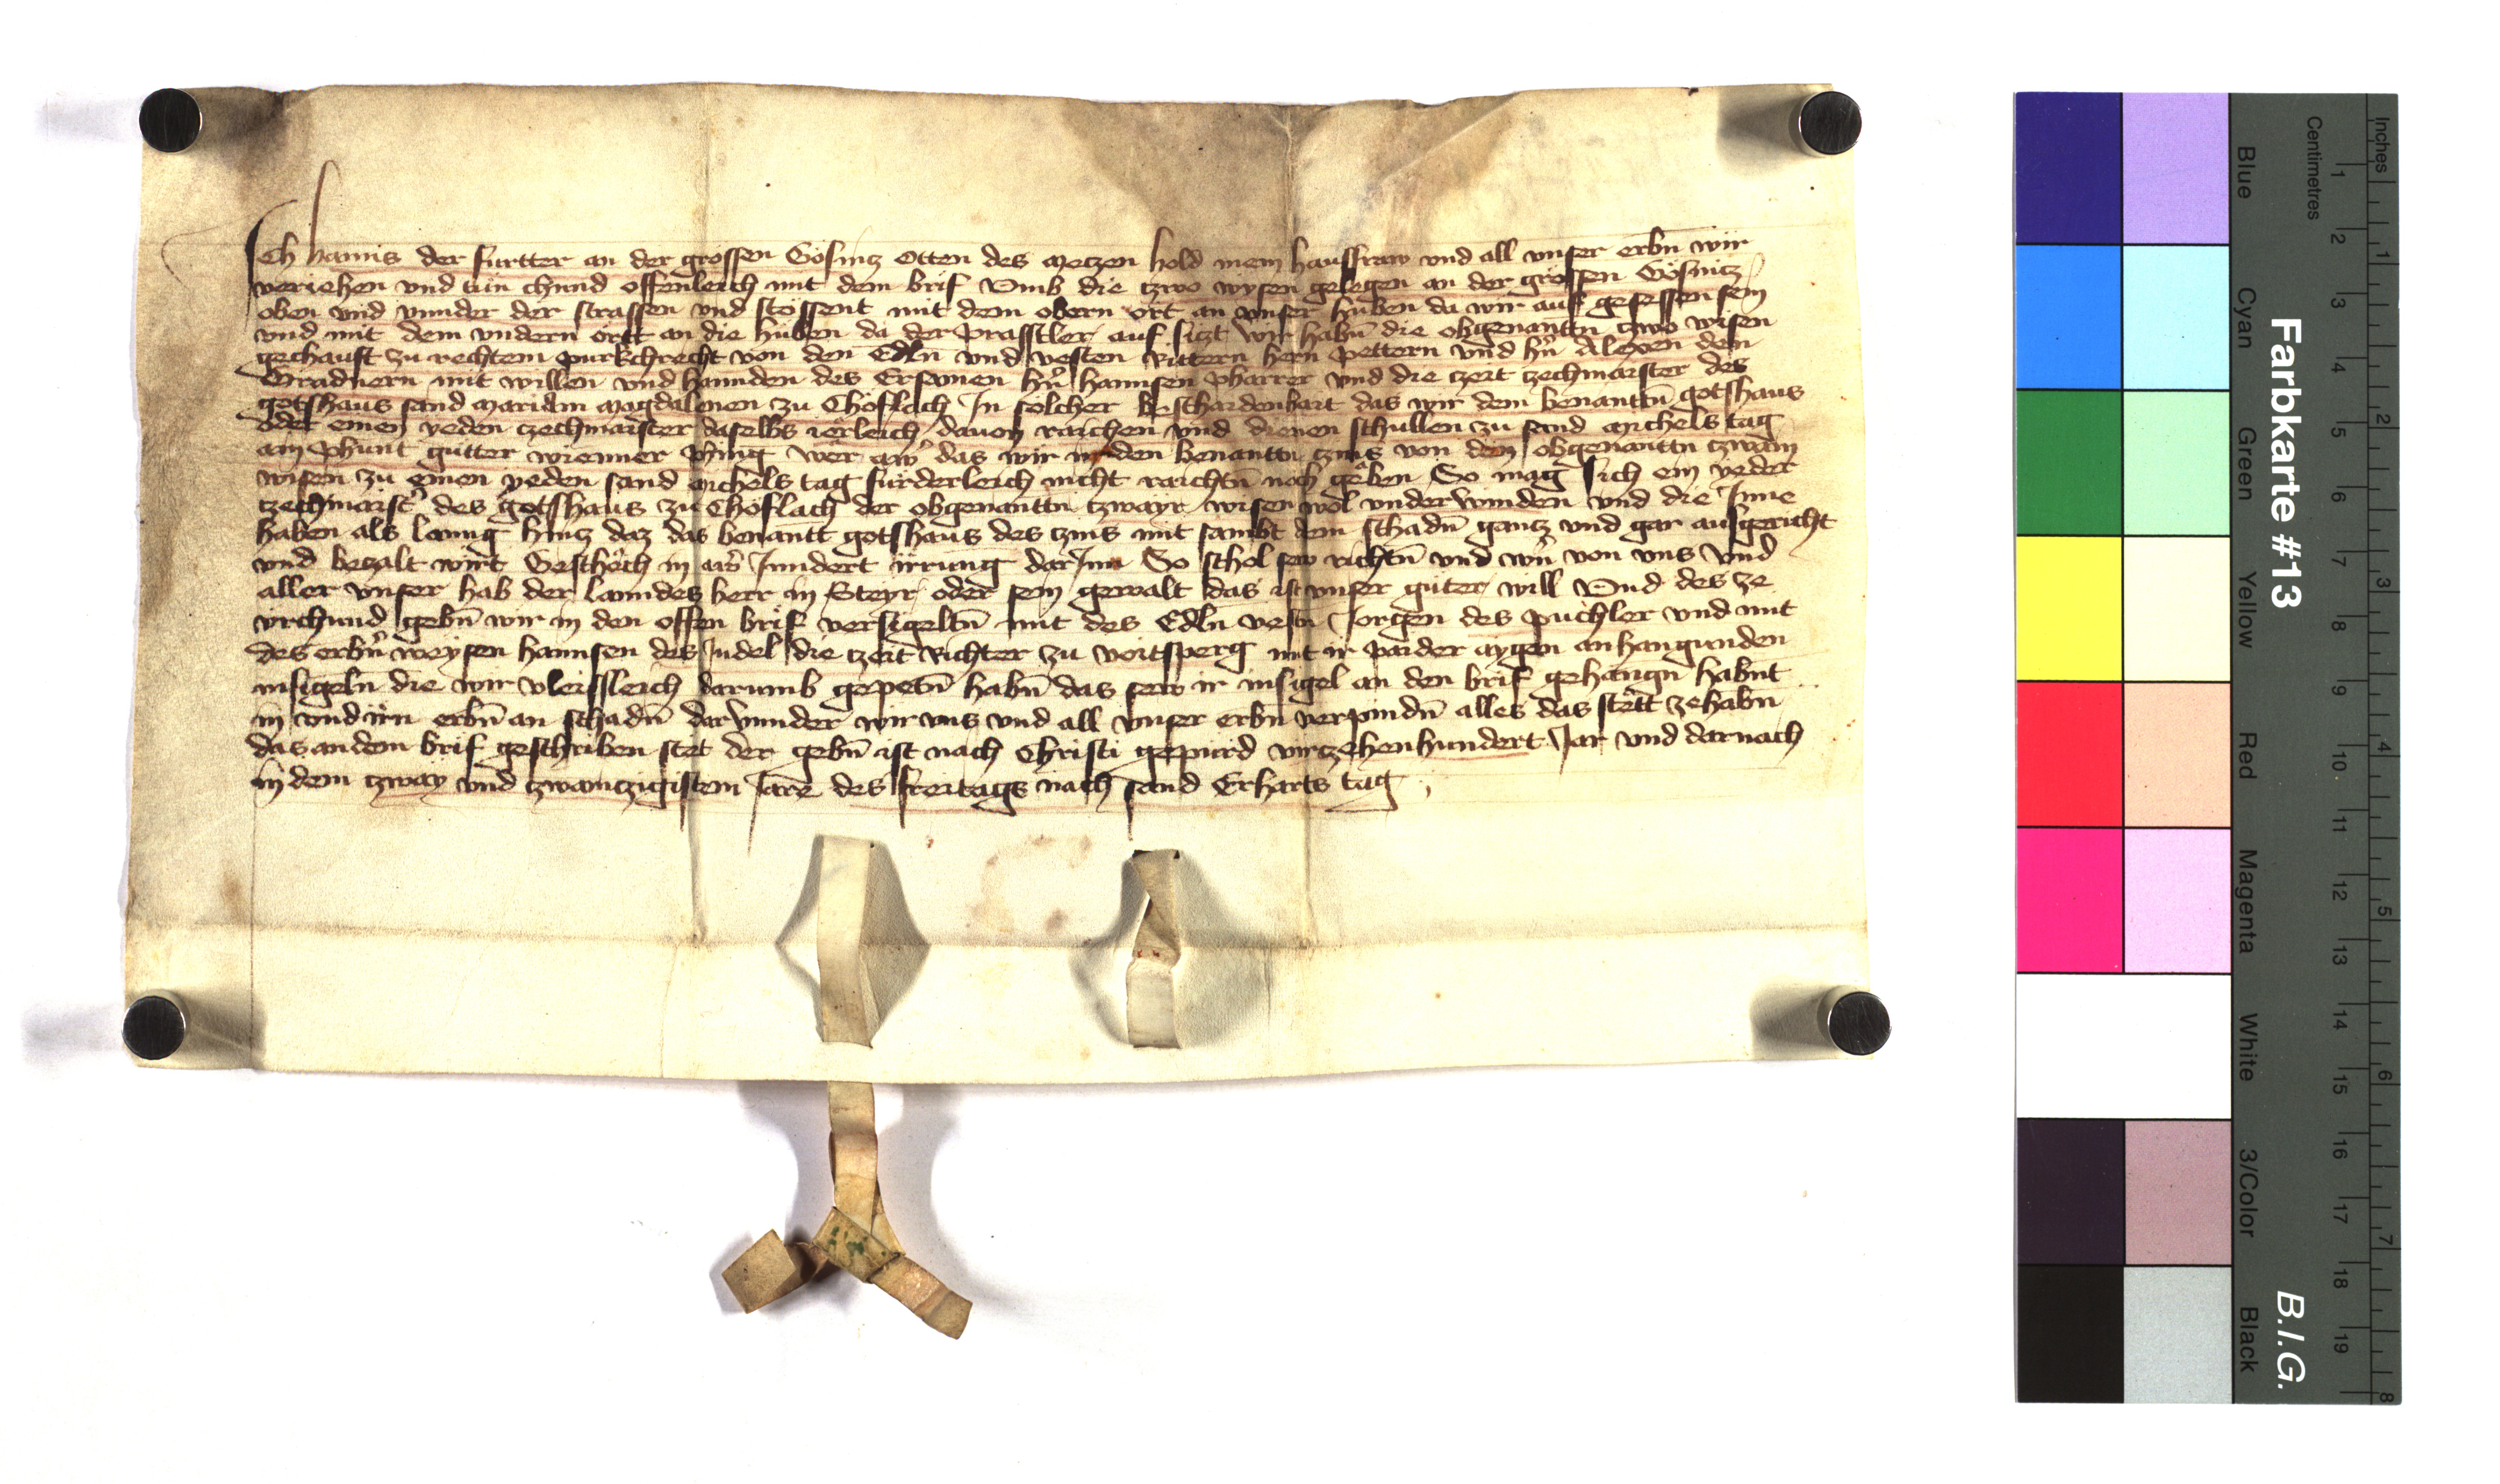 Ich hanns der furtter an der grossen Gösnicz Otten des meczen hold mein hausfraw vnd all vnser erbn̄ wir
veriehen vnd tün chund offenleich mit dem brif Vmb die czwo wysen gelegen an der grossen Gösnicz
oben vnd vnnder der strassen vnd stössent mit dem obern ort an vnser huben da wir auf gesessen sein
vnd mit dem vndern ortt an die hüben da der Prasstler auf siczt wir habn̄ die obgenanttn czwo wisen
gechauft zu rechtem purkchrecht von den Edln vnd vesten Rittern hern pettern vnd hn̄ Alexen den
Gradnern mit willen vnd hannden des Ersamen hn̄ hannsen pharrer vnd die czeit czechmaister des
gotshaus sand Mariam Magdalenen zu Chöflach In solcher beschaidenhait das wir dem benanttn̄ gotshaus
oder einen yeden czechmaister daselbs ierleich dauon raichen vnd dienen schullen zu sand michels tag
ain phunt gutter wienner phing wer aw̉ das wir in den benanttn czins von den obgenanttn czwain
wisen zu einen yeden sand michels tag fürderleich nicht raichtn̄ noch gäben So mag sich ein yeder
czechmaist̉ des gotshaus zu Chöflach der obgenanttn czwayr wisen wol vnderwinden vnd die Inne
haben als lanng hincz daz das benantt gotshaus des czins mit sambt dem schadn̄ gancz vnd gar ausgericht
vnd beczalt wirt Geschech in aw̉ Inndert irrung darInn So schol sew richtn̄ vnd wn̉ von vns vnd
aller vnser hab der lanndes herr in Steyr oder sein gewalt das ist vnser guter will Vnd des ze
vrchund gebn̄ wir in den offen brif versigeltn̄ mit des Edln vestn Jorgen des puchler vnd mit
des erbn̉ weysen hannsen des Judel die czeit Richter zu voitsperg mit ir paider aygen anhangunden
insigeln die wir vleissleich darumb gepetn̄ habn̄ das sew ir insigel an den brif gehangn̄ habnt
in vnd irn erbn̄ an schadn̄ darvnnder wir vns vnd all vnser erbn̄ verpindn̄ alles das stëtt zehabn̄
das an dem brif geschriben stet der gebn̄ ist nach Christi gepurd virczehenhundert Jar vnd darnach
in dem czway vnd czwainczigistem Jare des freitags nach sand Erharts tag
Farbkarte #13
B.I.G.
Inches
1
2
3
4
5
6
7
8
Centimetres
1
2
3
4
5
6
7
8
9
10
11
12
13
14
15
16
17
18
19
Blue
Cyan
Green
Yellow
Red
Magenta
White
3/Color
Black